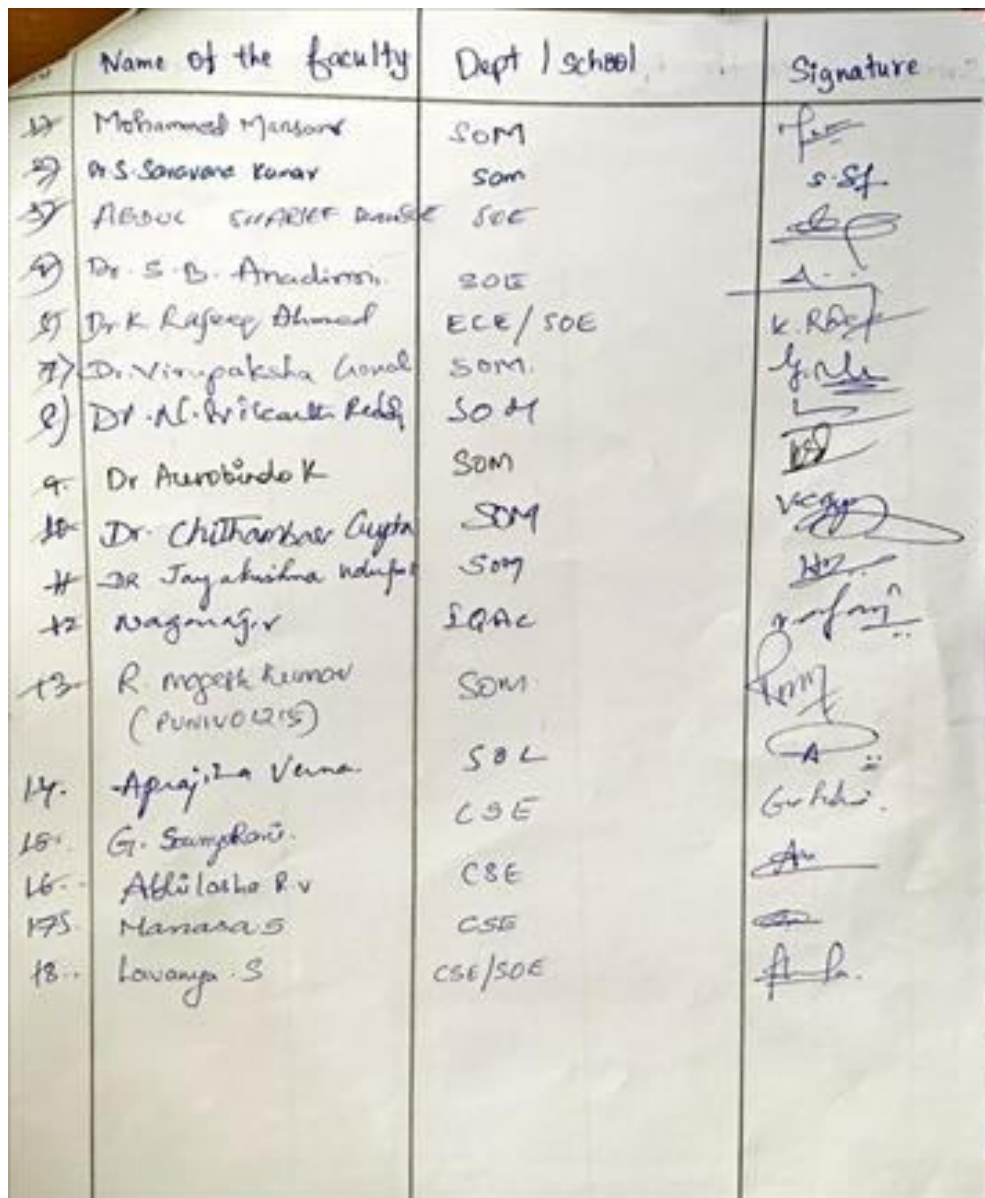 Name of the faculty Dept / school Signature
1) Mohammed Mansoor SOM
2) Dr S. Saravana Kumar SOM S.
3) ABDUL SHARIEF SOE
4) Dr. S. B. Anadinni SOE
5) Dr K Rafeeq Ahmed ECE/SOE K.
7) Dr. Virupaksha Gonal SOM.
8) Dr. N. Srikanth Reddy SOM
9. Dr Aurobindo K SOM
10 Dr. Chithambar Gupta SOM
11 DR Jayakrishna SOM
12 Nagaraj.v IQAC
13 R. mogesh Kumar SOM
(PUNIV01215)
14. Aprajita Verma. SOL
15. G. CSE
16. Abhilasha R.V CSE
17. Manasa S CSE
18. Lavanya. S CSE/SOE